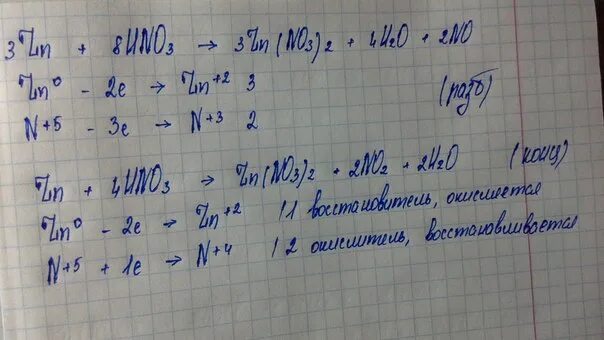 3Zn + 8HNO3 → 3Zn(NO3)2 + 4H2O + 2NO
Zn⁰ - 2e → Zn⁺² 3 (разб)
N+5 - 3e → N+3 2
Zn + 4HNO3 → Zn(NO3)2 + 2NO2 + 2H2O (конц)
Zn⁰ - 2e → Zn⁺² | 1 восстановитель, окисляется
N+5 + 1e → N+4 | 2 окислитель, восстанавливается